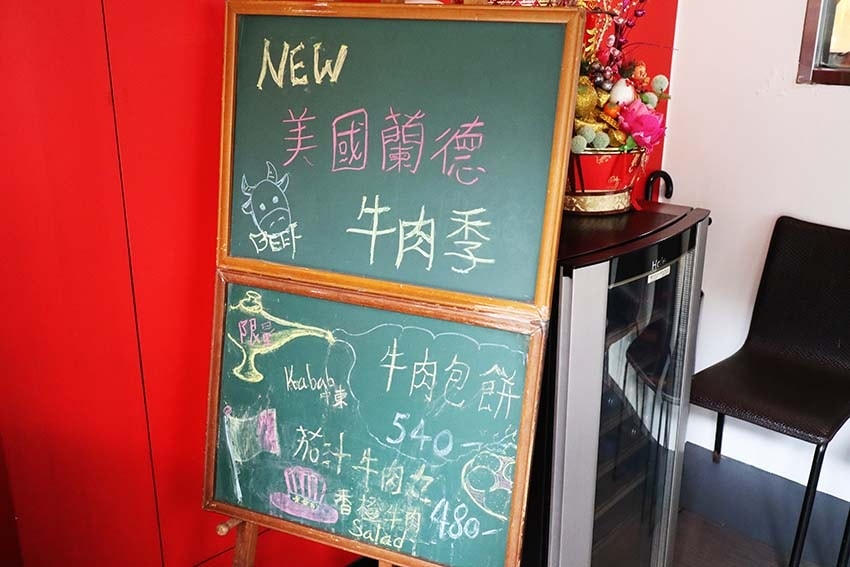 NEW
美國蘭德
BEEF
牛肉季
限量
牛肉包餅
Kabab
中東
540-
茄汁牛肉丸
香橙牛肉
Salad
480-